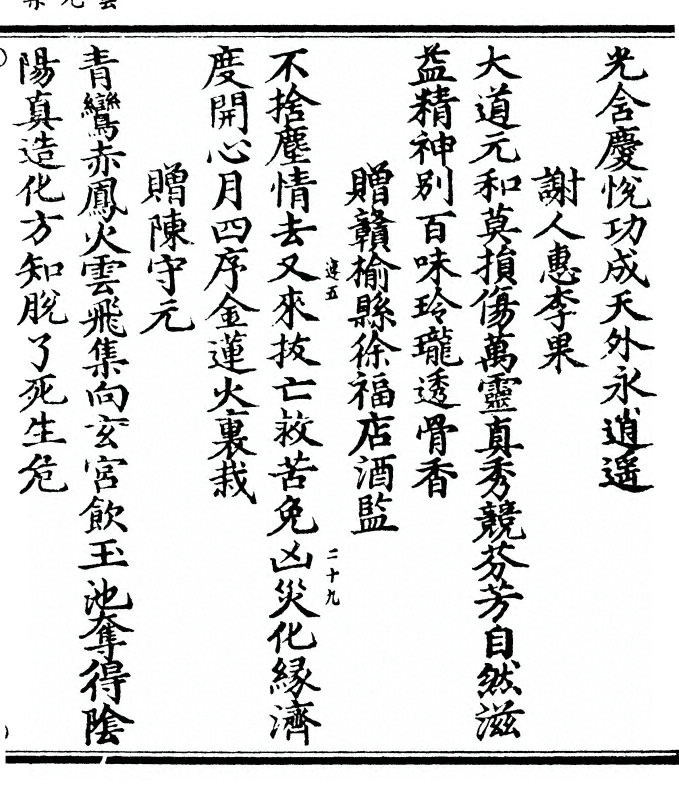 光含慶悅功成天外永逍遥
謝人惠李果
大道元和莫損傷萬靈真秀競芬芳自然滋
益精神別百味玲瓏透骨香
贈贛榆縣徐福店酒監
連五
二十九
不捨塵情去又來抜亡救苦免凶災化緣濟
度開心月四序金蓮火裏栽
贈陳守元
青鸞赤鳳火雲飛集向玄宮飲玉池奪得陰
陽真造化方知脫了死生危